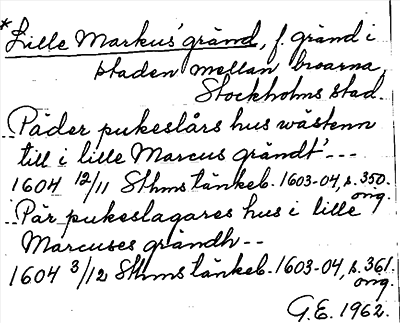 *Lille Markus' gränd, f. gränd i
staden mellan broarna,
Stockholms stad.
Päder pukeslårs hus wästenn
till i lille Marcus grändt' - - -
1604 12/11 Sthms tänkeb. 1603-04, s. 350.
orig.
Pär pukeslagares hus i lille
Marcuses grändh - -
1604 3/12 Sthms tänkeb. 1603-04, s. 361.
orig.
G.E. 1962.